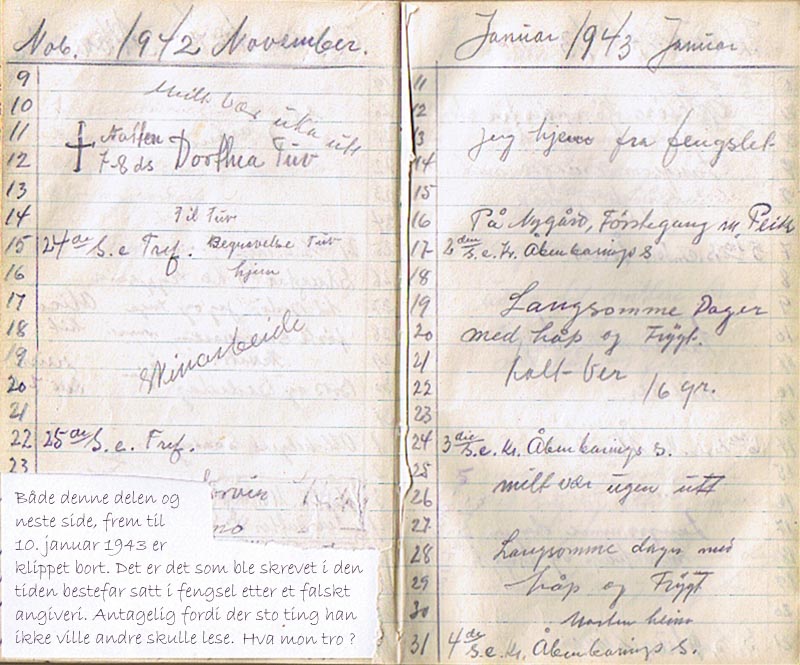 Nob. 1942 November.
9
10 Mildt vær uka utt
11 Natten
12 7-8 ds Dorthea Tuv
13
14 Til Tuv
15 24de S. e Tref. Begravelse Tuv
16 hjem
17
18
19 Skinarbeide
20
21
22 25de S. e. Tref.
23
Både denne delen og
neste side, frem til
10. januar 1943 er
klippet bort. Det er det som ble skrevet i den
tiden bestefar satt i fengsel etter et falskt
angiveri. Antagelig fordi der sto ting han
ikke ville andre skulle lese. Hva mon tro ?
Januar 1943 Januar
11
12
13 jeg hjem fra fengslet
14
15
16 På Nygård, Förstegang m. Peik
17 2den S. e. Kr. Åbenbarings S
18
19 Langsomme Dager
20 med håp og Frÿgt.
21
22 kalt-ver 16 gr.
23
24 3die S. e. Kr. Åbenbarings S.
25
26 mildt vær ugen utt
27
28 Langsomme dager med
29 håp og Frÿgt
30 hjem
31 4de S. e. Kr. Åbenbarings S.